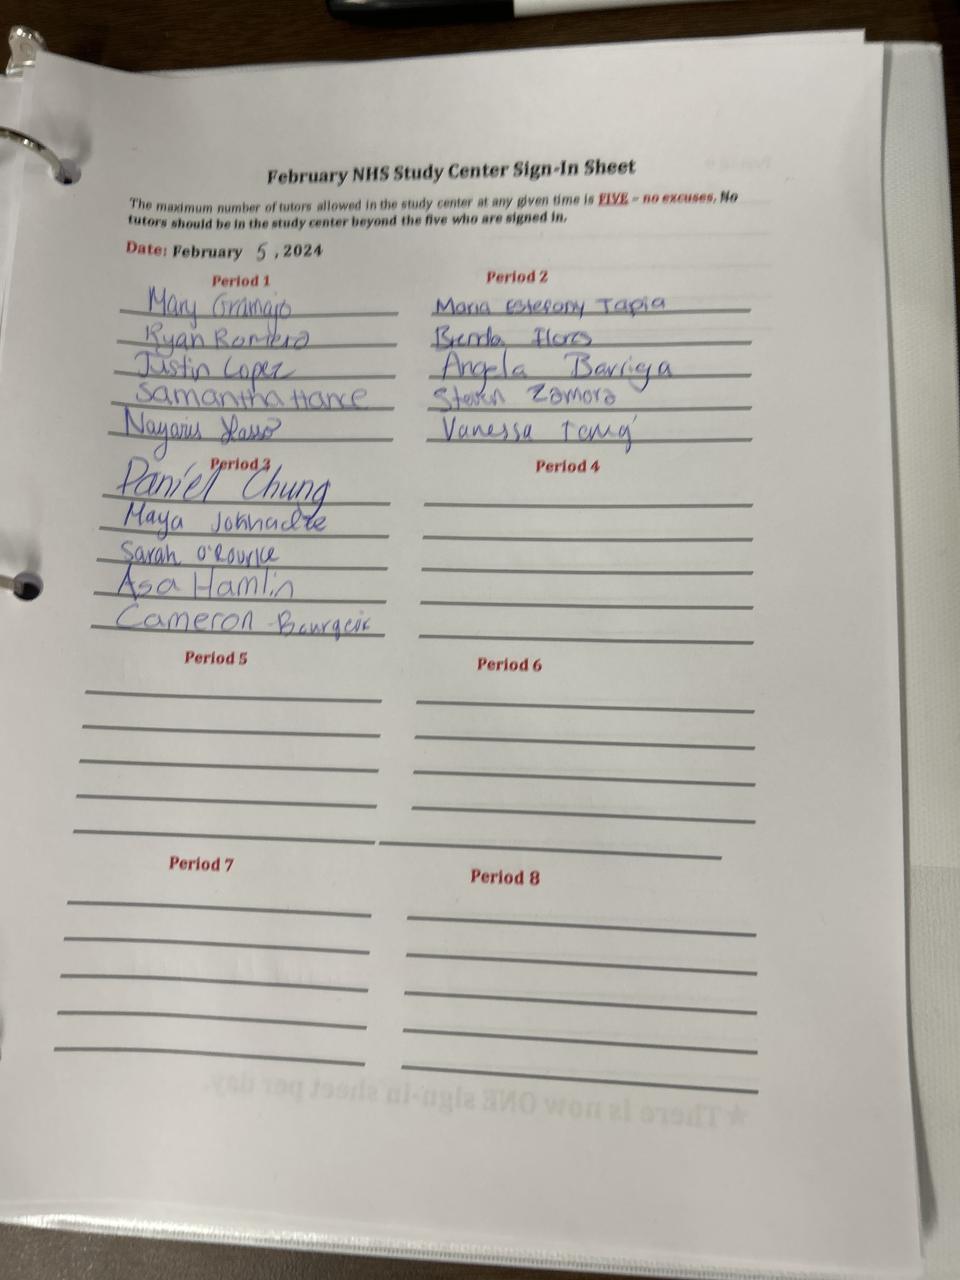 February NHS Study Center Sign-In Sheet
The maximum number of tutors allowed in the study center at any given time is FIVE – no excuses. No
tutors should be in the study center beyond the five who are signed in.
Date: February 5, 2024
Period 1
Mary Gramajo
Ryan Romero
Justin Lopez
Samantha Hance
Nayaris Lasso
Period 2
Maria Estefany Tapia
Brenda Flores
Angela Barriga
Steven Zamora
Vanessa
Period 3
Daniel Chung
Maya
Sarah O'Rourke
Asa Hamlin
Cameron Bourgeois
Period 4
Period 5
Period 6
Period 7
Period 8
★There is now ONE sign-in sheet per day.